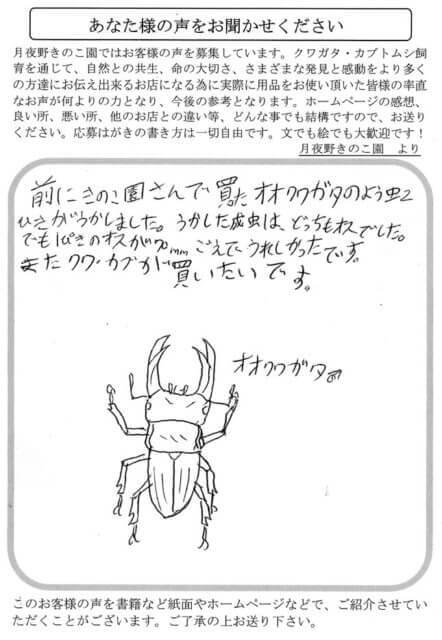 あなた様の声をお聞かせください
月夜野きのこ園ではお客様の声を募集しています。クワガタ・カブトムシ飼
育を通じて、自然との共生、命の大切さ、さまざまな発見と感動をより多く
の方達にお伝え出来るお店になる為に実際に用品をお使い頂いた皆様の率直
なお声が何よりの力となり、今後の参考となります。ホームページの感想、
良い所、悪い所、他のお店との違い等、どんな事でも結構ですので、お送り
ください。応募はがきの書き方は一切自由です。文でも絵でも大歓迎です！
月夜野きのこ園　より
前にきのこ園さんで買ったオオクワガタのよう虫2
ひきがうかしました。うかした成虫は、どっちもオスでした。
でも1ぴきのオスが mmごえでうれしかったです。
またクワ・カブが買いたいです。
オオクワガタ♂
このお客様の声を書籍など紙面やホームページなどで、ご紹介させてい
ただくことがございます。ご了承の上お送り下さい。